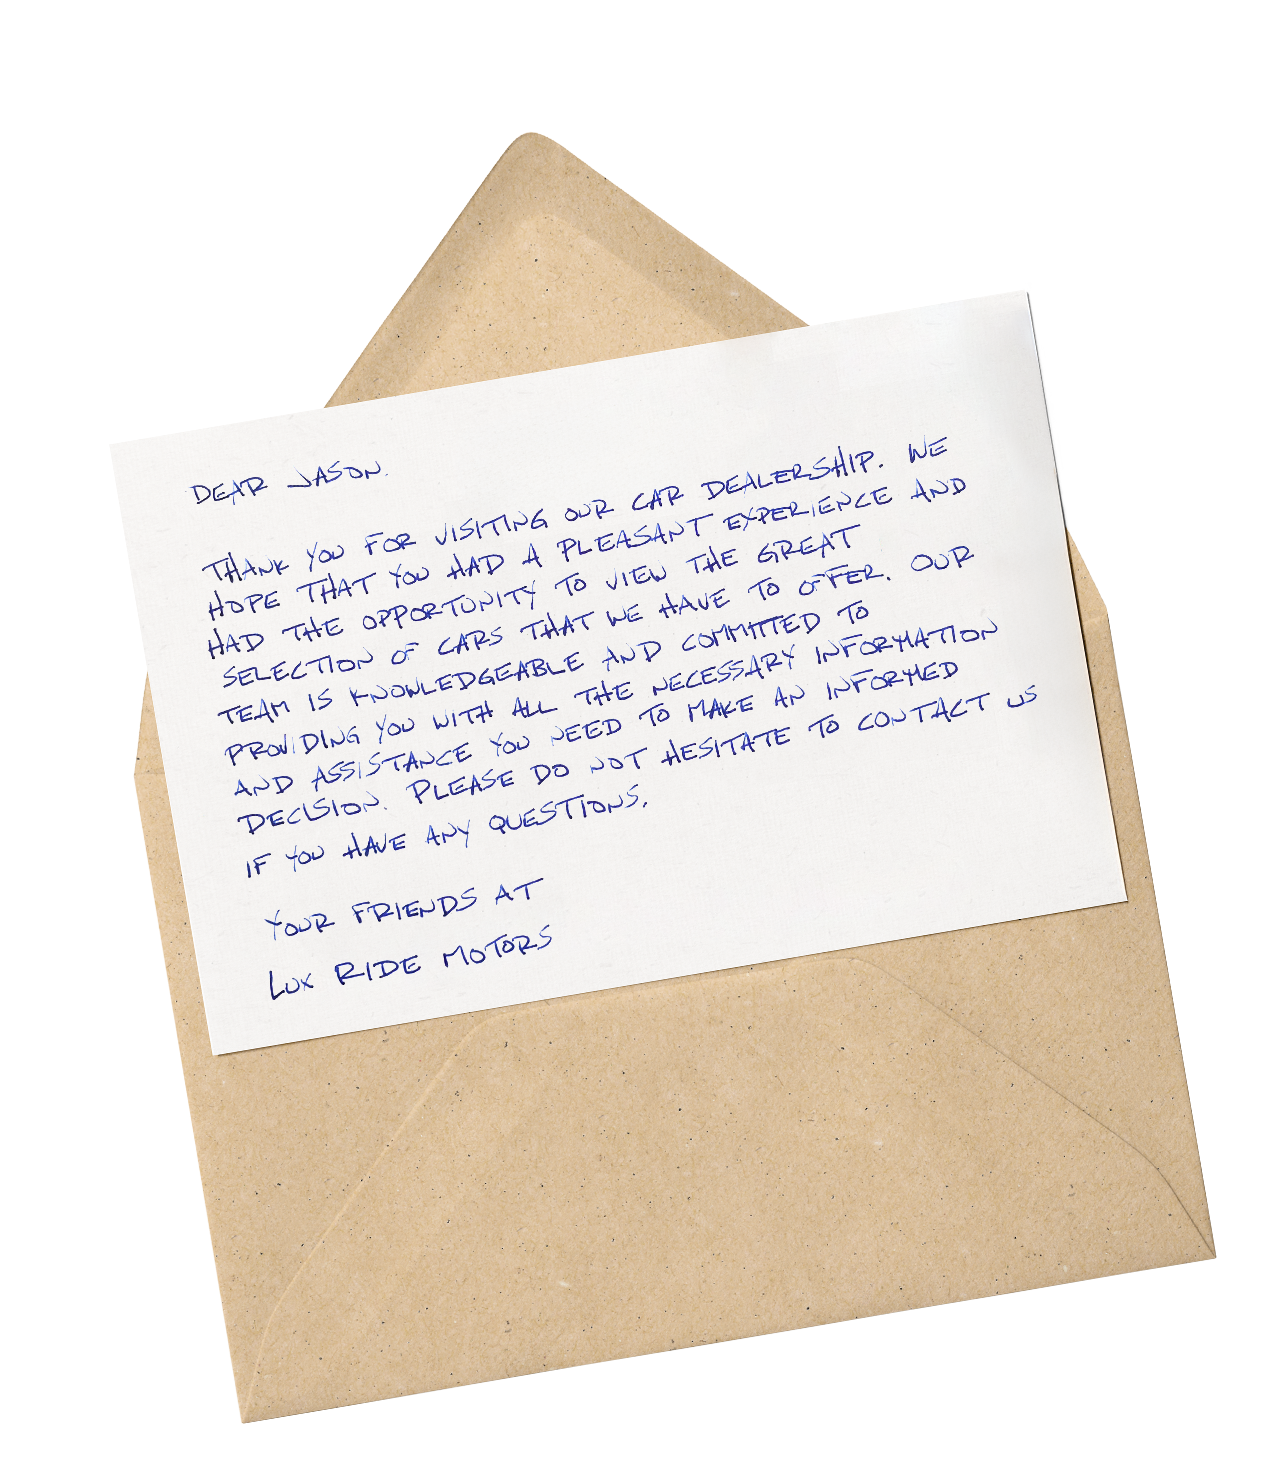 DEAR JASON.
THANK YOU FOR VISITING OUR CAR DEALERSHIP. WE
HOPE THAT YOU HAD A PLEASANT EXPERIENCE AND
HAD THE OPPORTUNITY TO VIEW THE GREAT
SELECTION OF CARS THAT WE HAVE TO OFFER. OUR
TEAM IS KNOWLEDGEABLE AND COMMITTED TO
PROVIDING YOU WITH ALL THE NECESSARY INFORMATION
AND ASSISTANCE YOU NEED TO MAKE AN INFORMED
DECISION. PLEASE DO NOT HESITATE TO CONTACT US
IF YOU HAVE ANY QUESTIONS.
YOUR FRIENDS AT
LUX RIDE MOTORS